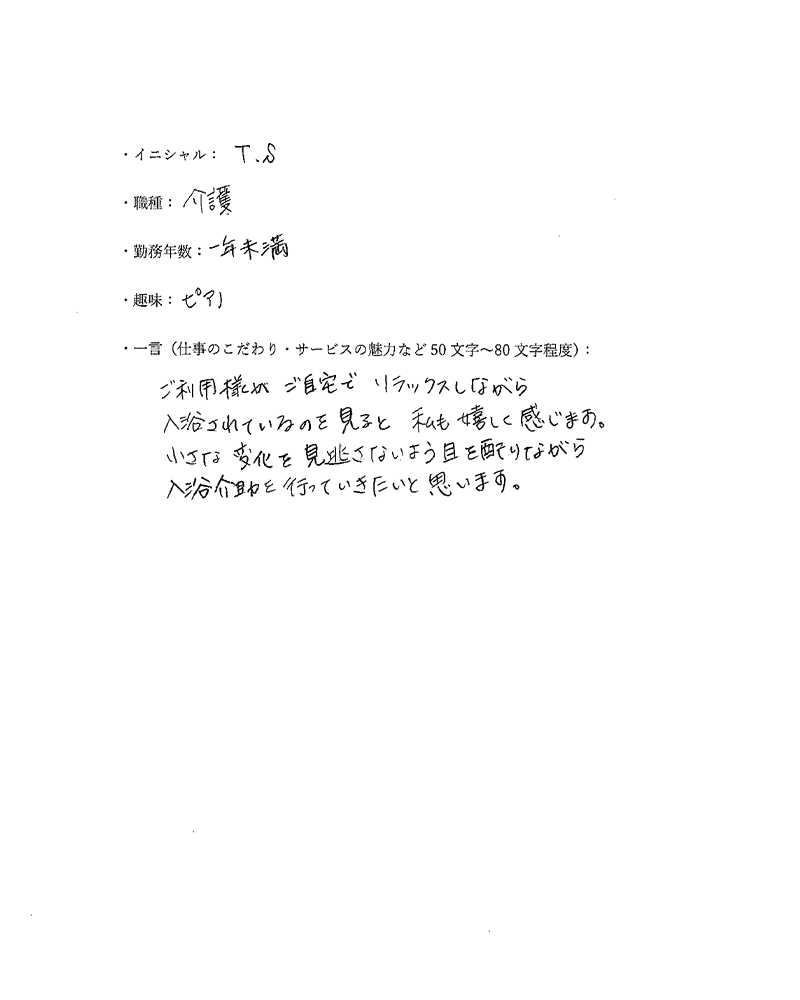 ・イニシャル： T.S
・職種： 介護
・勤務年数：一年未満
・趣味： ピアノ
・一言（仕事のこだわり・サービスの魅力など 50 文字～80 文字程度）：
ご利用様が ご自宅で リラックスしながら
入浴されているのを 見ると 私も 嬉しく 感じます。
小さな 変化を 見逃さないよう 目を配りながら
入浴介助を 行っていきたいと 思います。